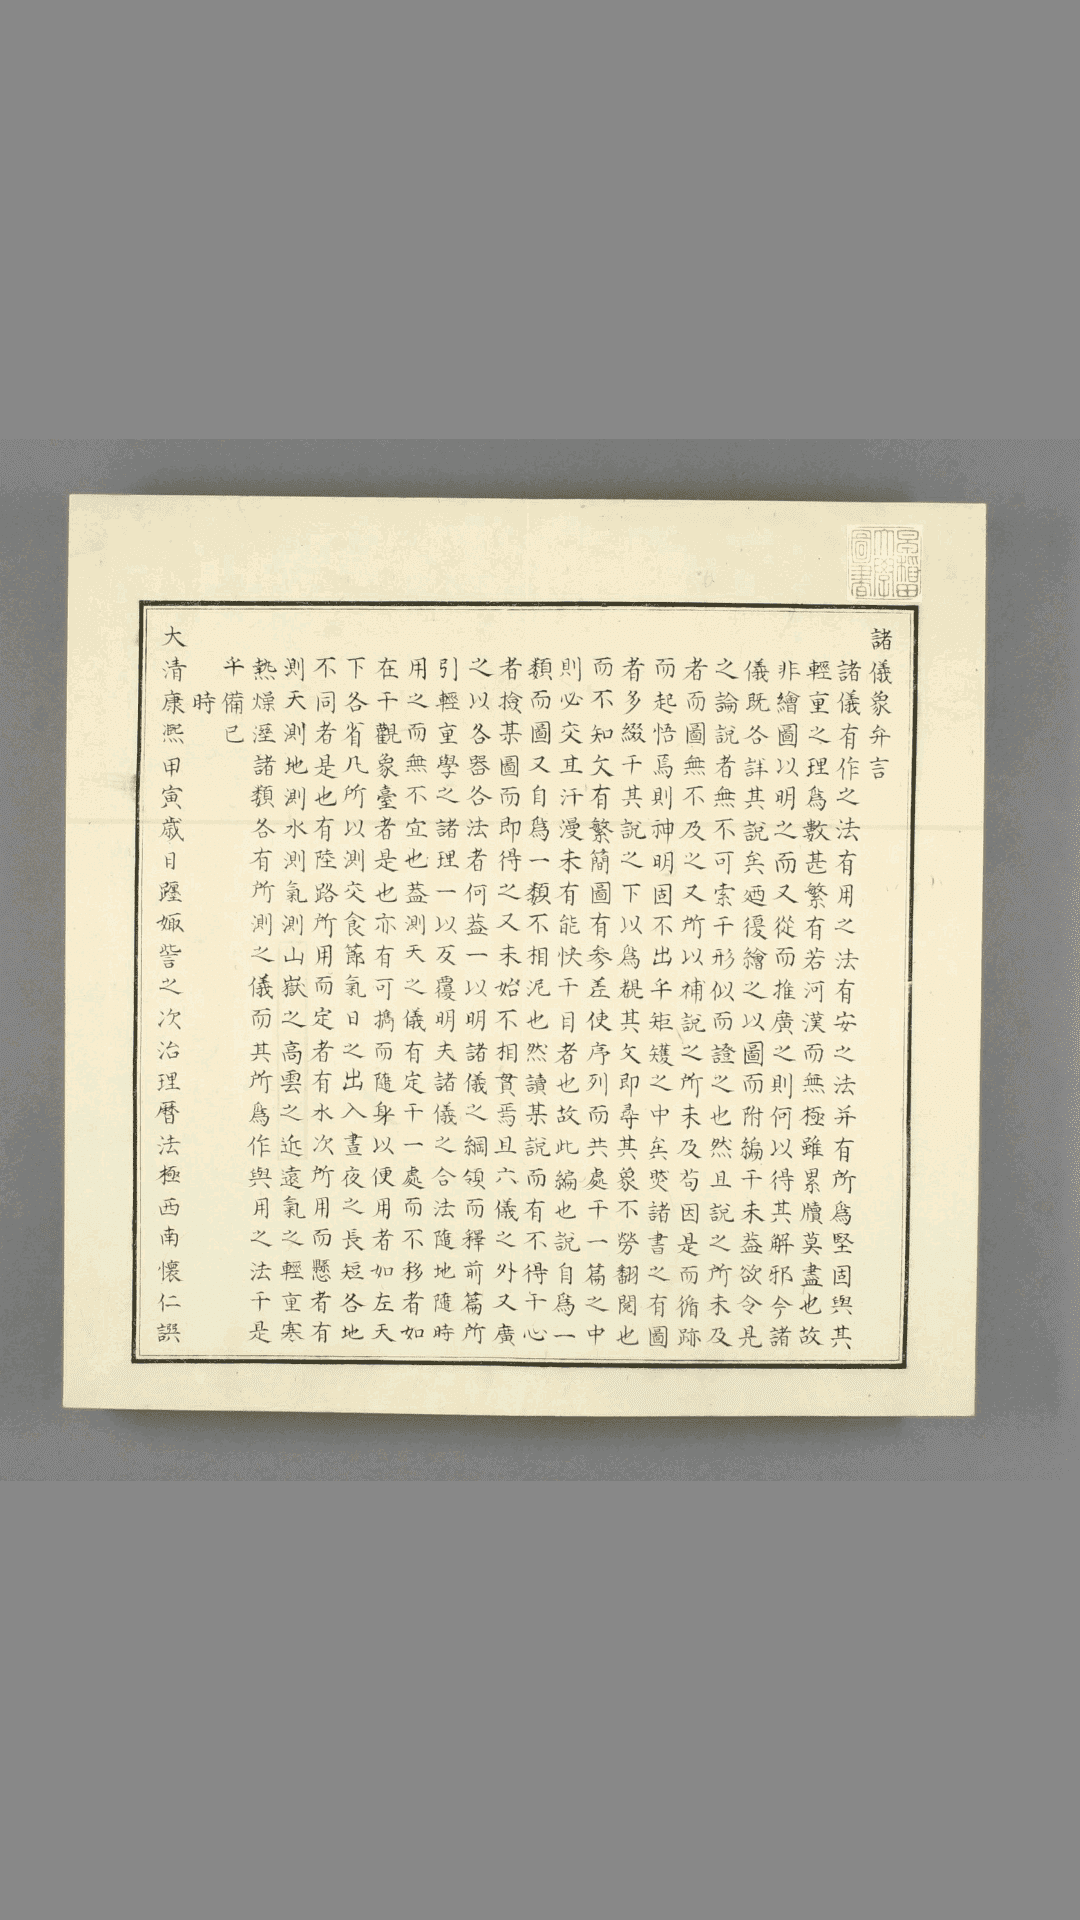 諸儀象弁言
諸儀有作之法有用之法有安之法并有所爲堅固與其
輕重之理爲數甚繁有若河漢而無極雖累牘莫盡也故
非繪圖以明之而又從而推廣之則何以得其解邪今諸
儀既各詳其說矣廼復繪之以圖而附編于末葢欲令見
之論說者無不可索于形似而證之也然且說之所未及
者而圖無不及之又所以補說之所未及苟因是而循跡
而起悟焉則神明固不出乎矩矱之中矣奘諸書之有圖
者多綴于其說之下以爲覩其文即尋其象不勞翻閱也
而不知文有繁簡圖有參差使序列而共處于一篇之中
則必交互汗漫未有能快于目者也故此編也說自爲一
類而圖又自爲一類不相泥也然讀某說而有不得于心
者撿某圖而即得之又未始不相貫焉且六儀之外又廣
之以各器各法者何葢一以明諸儀之綱領而釋前篇所
引輕重學之諸理一以反覆明夫諸儀之合法隨地隨時
用之而無不宜也葢測天之儀有定于一處而不移者如
在于觀象臺者是也亦有可攜而隨身以便用者如左天
下各省凡所以測交食節氣日之出入晝夜之長短各地
不同者是也有陸路所用而定者有水次所用而懸者有
測天測地測水測氣測山嶽之高雲之近遠氣之輕重寒
熱燥溼諸類各有所測之儀而其所爲作與用之法于是
乎備已
時
大清康熙甲寅歲日躔娵訾之次治理曆法極西南懷仁譔